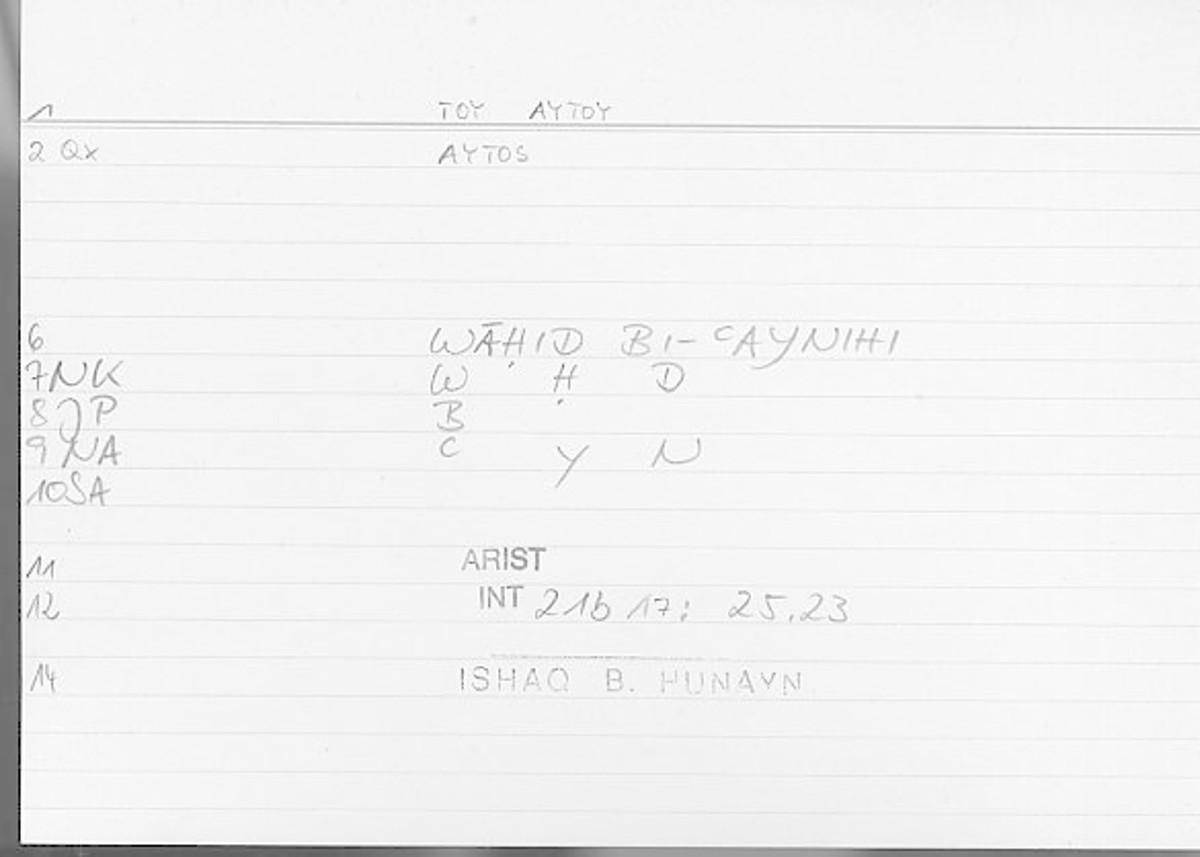 1 ΤΟΥ ΑΥΤΟΥ
2 Qx ΑΥΤΟS
6 WĀḤID BI-ʿAYNIHI
7 NK W Ḥ D
8 JP B
9 NA ʿ Y N
10 SA
11 ARIST
12 INT 21b 17: 25.23
14 ISHAQ B. HUNAYN